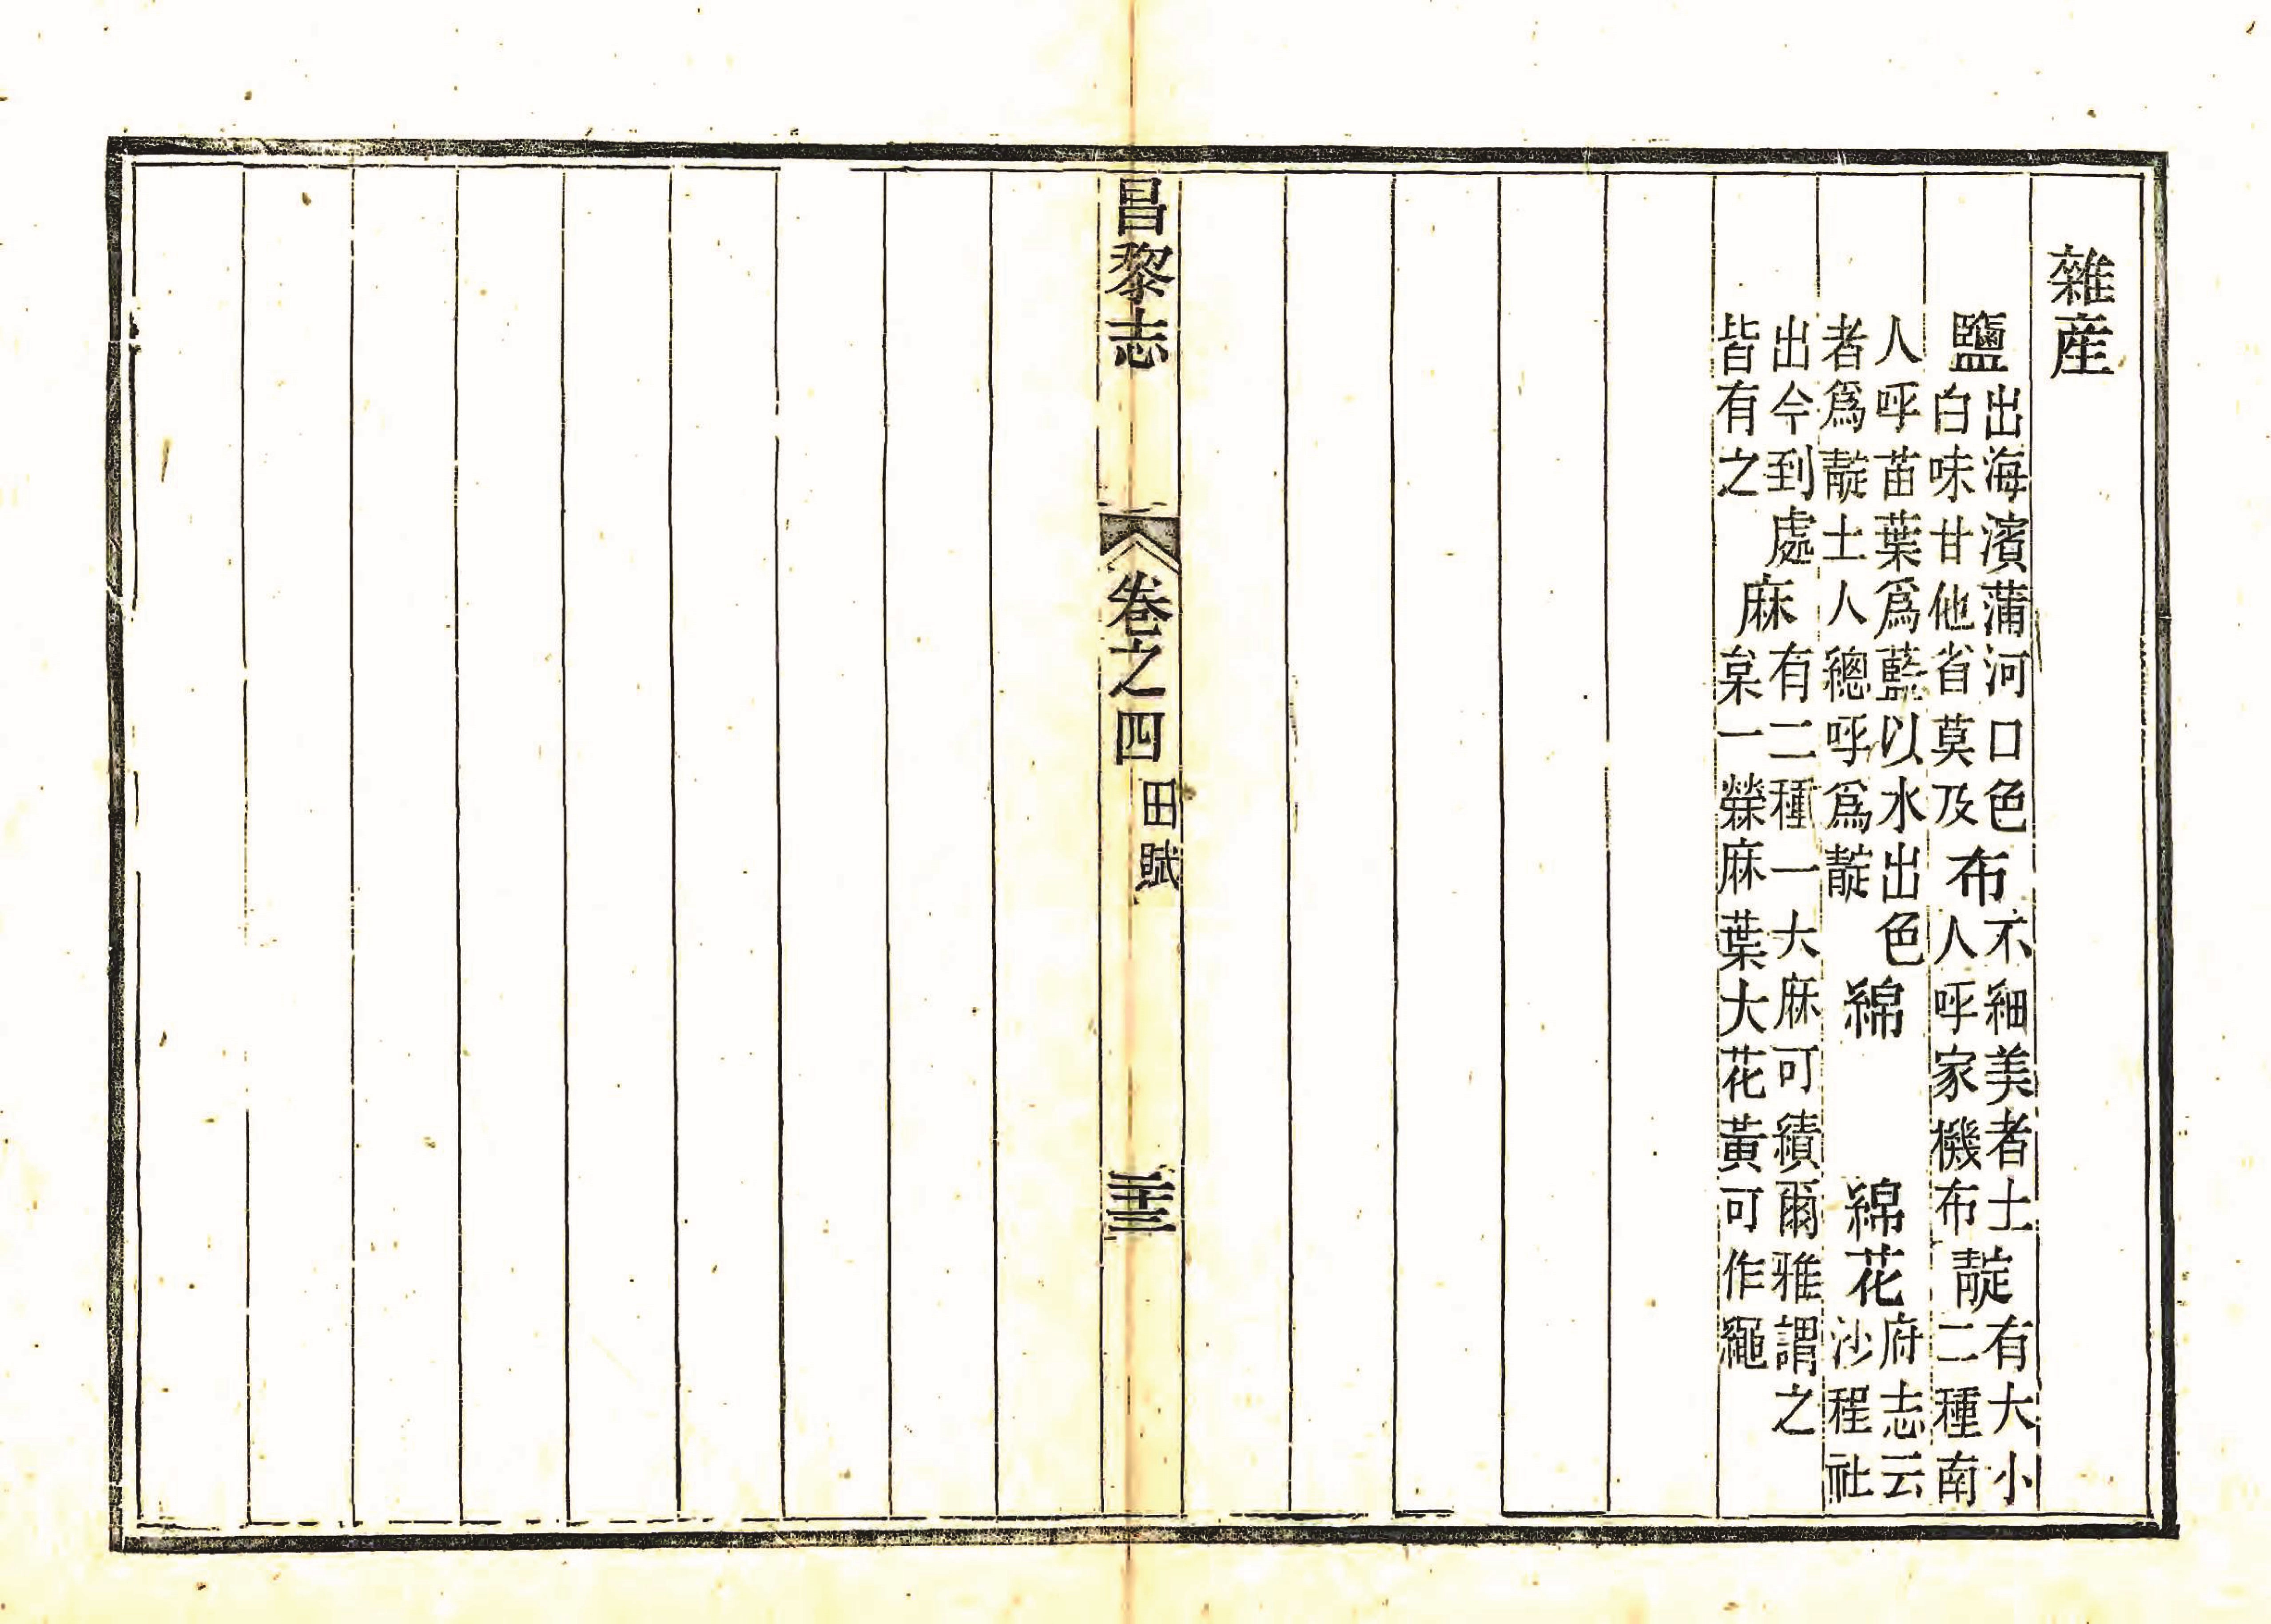 雜産
鹽出海濱蒲河口色白味甘他省莫及布不細美者土人呼家機布靛有大小二種南
人呼苗葉爲藍以水出色者爲靛土人總呼爲靛 綿 綿花府志云沙程社
出今到處皆有之麻有二種一大麻可績爾雅謂之枲一檾麻葉大花黃可作繩
昌黎志 卷之四 田賦 二十三